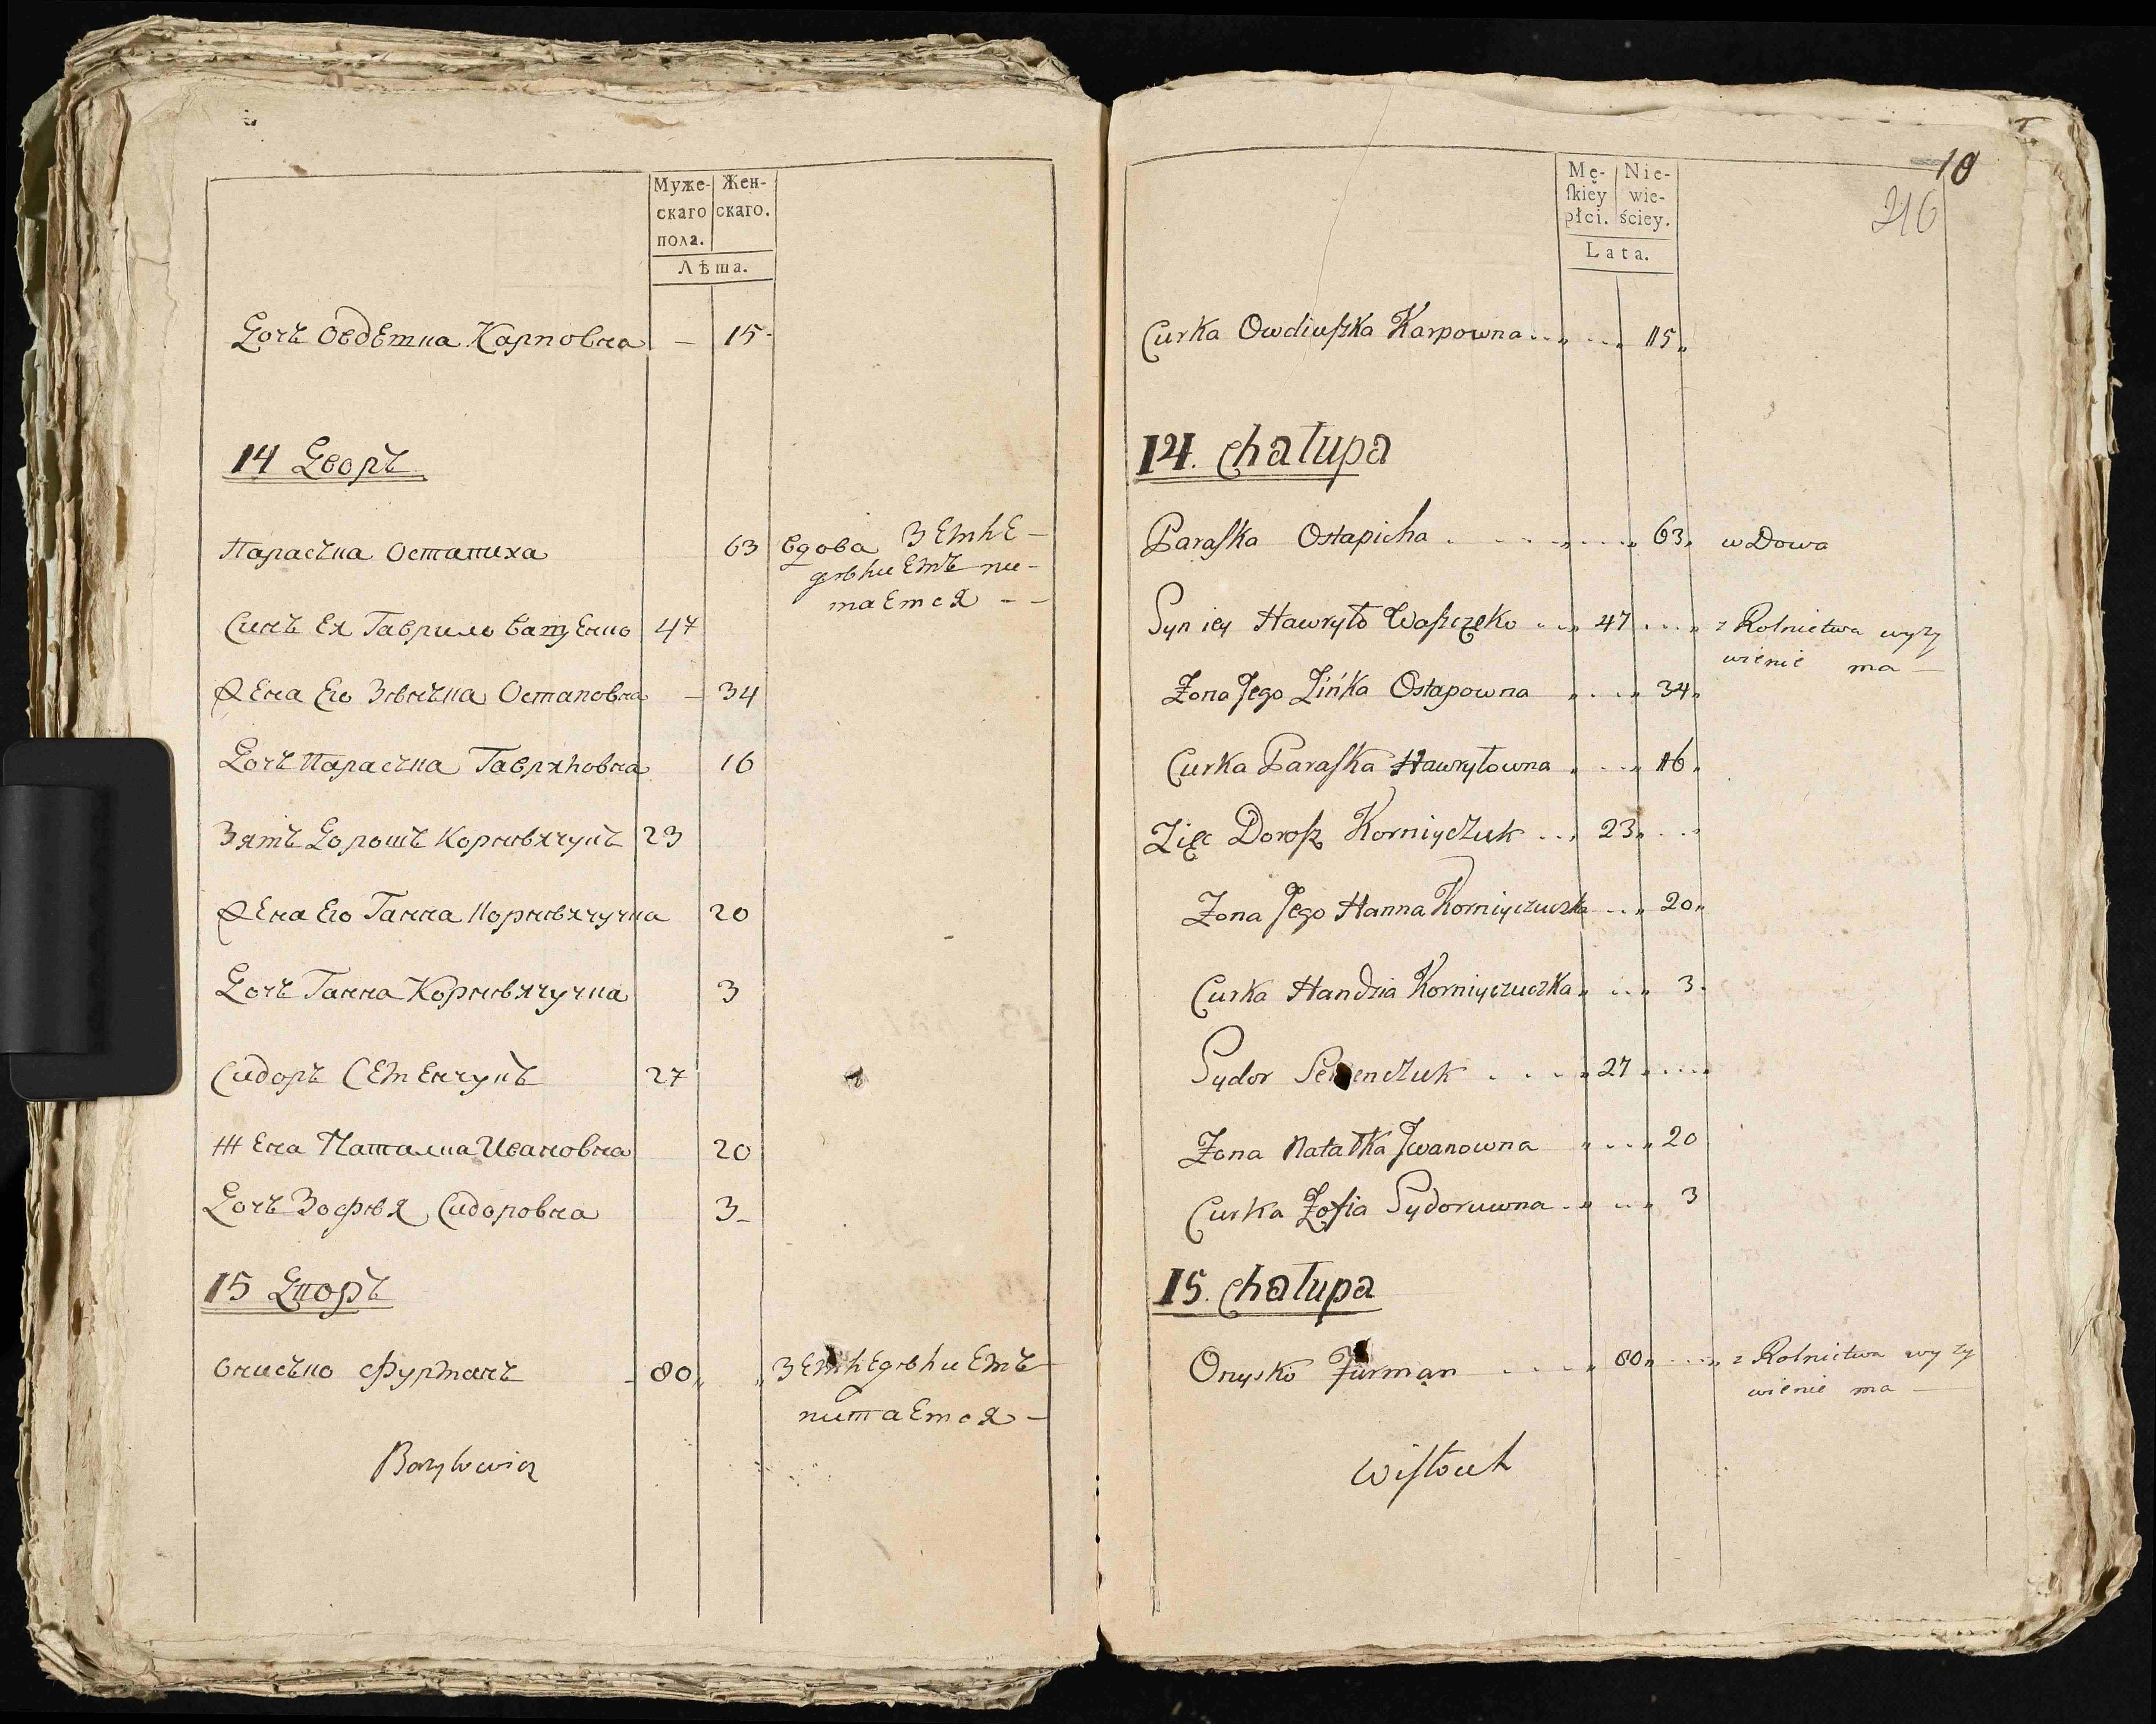 Муже- Жен-
скаго скаго.
пола.
Лѣта.
Дочъ Овдѣтка Карповна — 15
14 Дворъ
Параська Остапиха 63 вдова Землѣ-
делиемъ пи-
тается
Синъ Ея Гаврило 47
Жена Его Зѣнька Остаповна — 34
Дочъ Параська Гавриловна 16
Зятъ Дорошъ Корнѣйчукъ 23
Жена Его Ганна Корнѣйчучка 20
Дочъ Ганна Корнѣйчучка 3
Сидоръ Семенчукъ 27
Жена Наталка Ивановна 20
Дочъ Зофѣя Сидоровна 3
15 Дворъ
Онисько Фурманъ 80 Земледѣлиемъ
питается
Bazylewicz
10
216
Mę- Nie-
ſkiey wie-
płci. ściey.
Lata.
Curka Owdiuſzka Karpowna 15
14. chałupa
Paraſka Ostapicha 63 wDowa
Syn iey Hawryło Waſzczęko 47 z Rolnictwa wyzy
wienie ma
Zona Jego Zińka Ostapowna 34
Curka Paraſka Hawryłowna 16
Zięc Doroſz Korniyczuk 23
Zona Jego Hanna Korniyczuczka 20
Curka Handzia Korniyczuczka 3
Sydor Semenczuk 27
Zona Natałka Jwanowna 20
Curka Zofia Sydoruwna 3
15. chałupa
Onysko Furman 80 z Rolnictwa wyzy
wienie ma
Wiſłouch